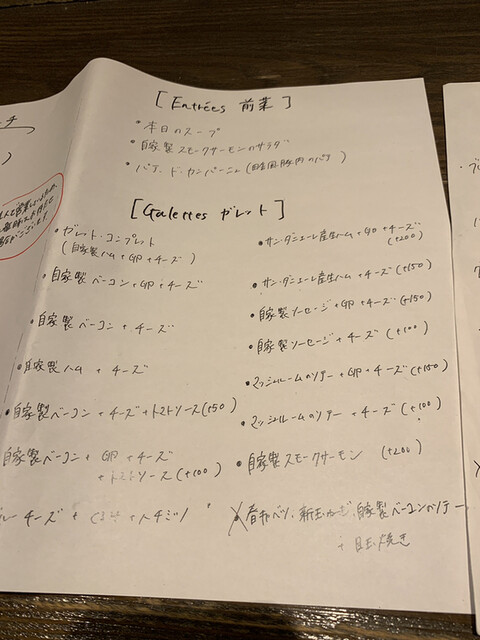 [Entrées 前菜]
• 本日のスープ
• 自家製スモークサーモンのサラダ
• パテ・ド・カンパーニュ(
[Galettes ガレット]
• ガレット・コンプレット
(自家製ハム+卵+チーズ)
• 自家製ベーコン+卵+チーズ
• 自家製ベーコン+チーズ
• 自家製ハム+チーズ
• 自家製ベーコン+チーズ+トマトソース(+50)
自家製ベーコン+卵+チーズ
+トマトソース(+100)
ルーチーズ+くるみ+ハチミツ
• サン・ダニエーレ産生ハム+卵+チーズ
(+200)
• サン・ダニエーレ産生ハム+チーズ(+150)
• 自家製ソーセージ+卵+チーズ(+150)
• 自家製ソーセージ+チーズ(+100)
• マッシュルームのソテー+卵+チーズ(+150)
• マッシュルームのソテー+チーズ(+100)
• 自家製スモークサーモン (+200)
• 春キャベツ、新玉ねぎ、自家製ベーコンのソテー
+目玉焼き